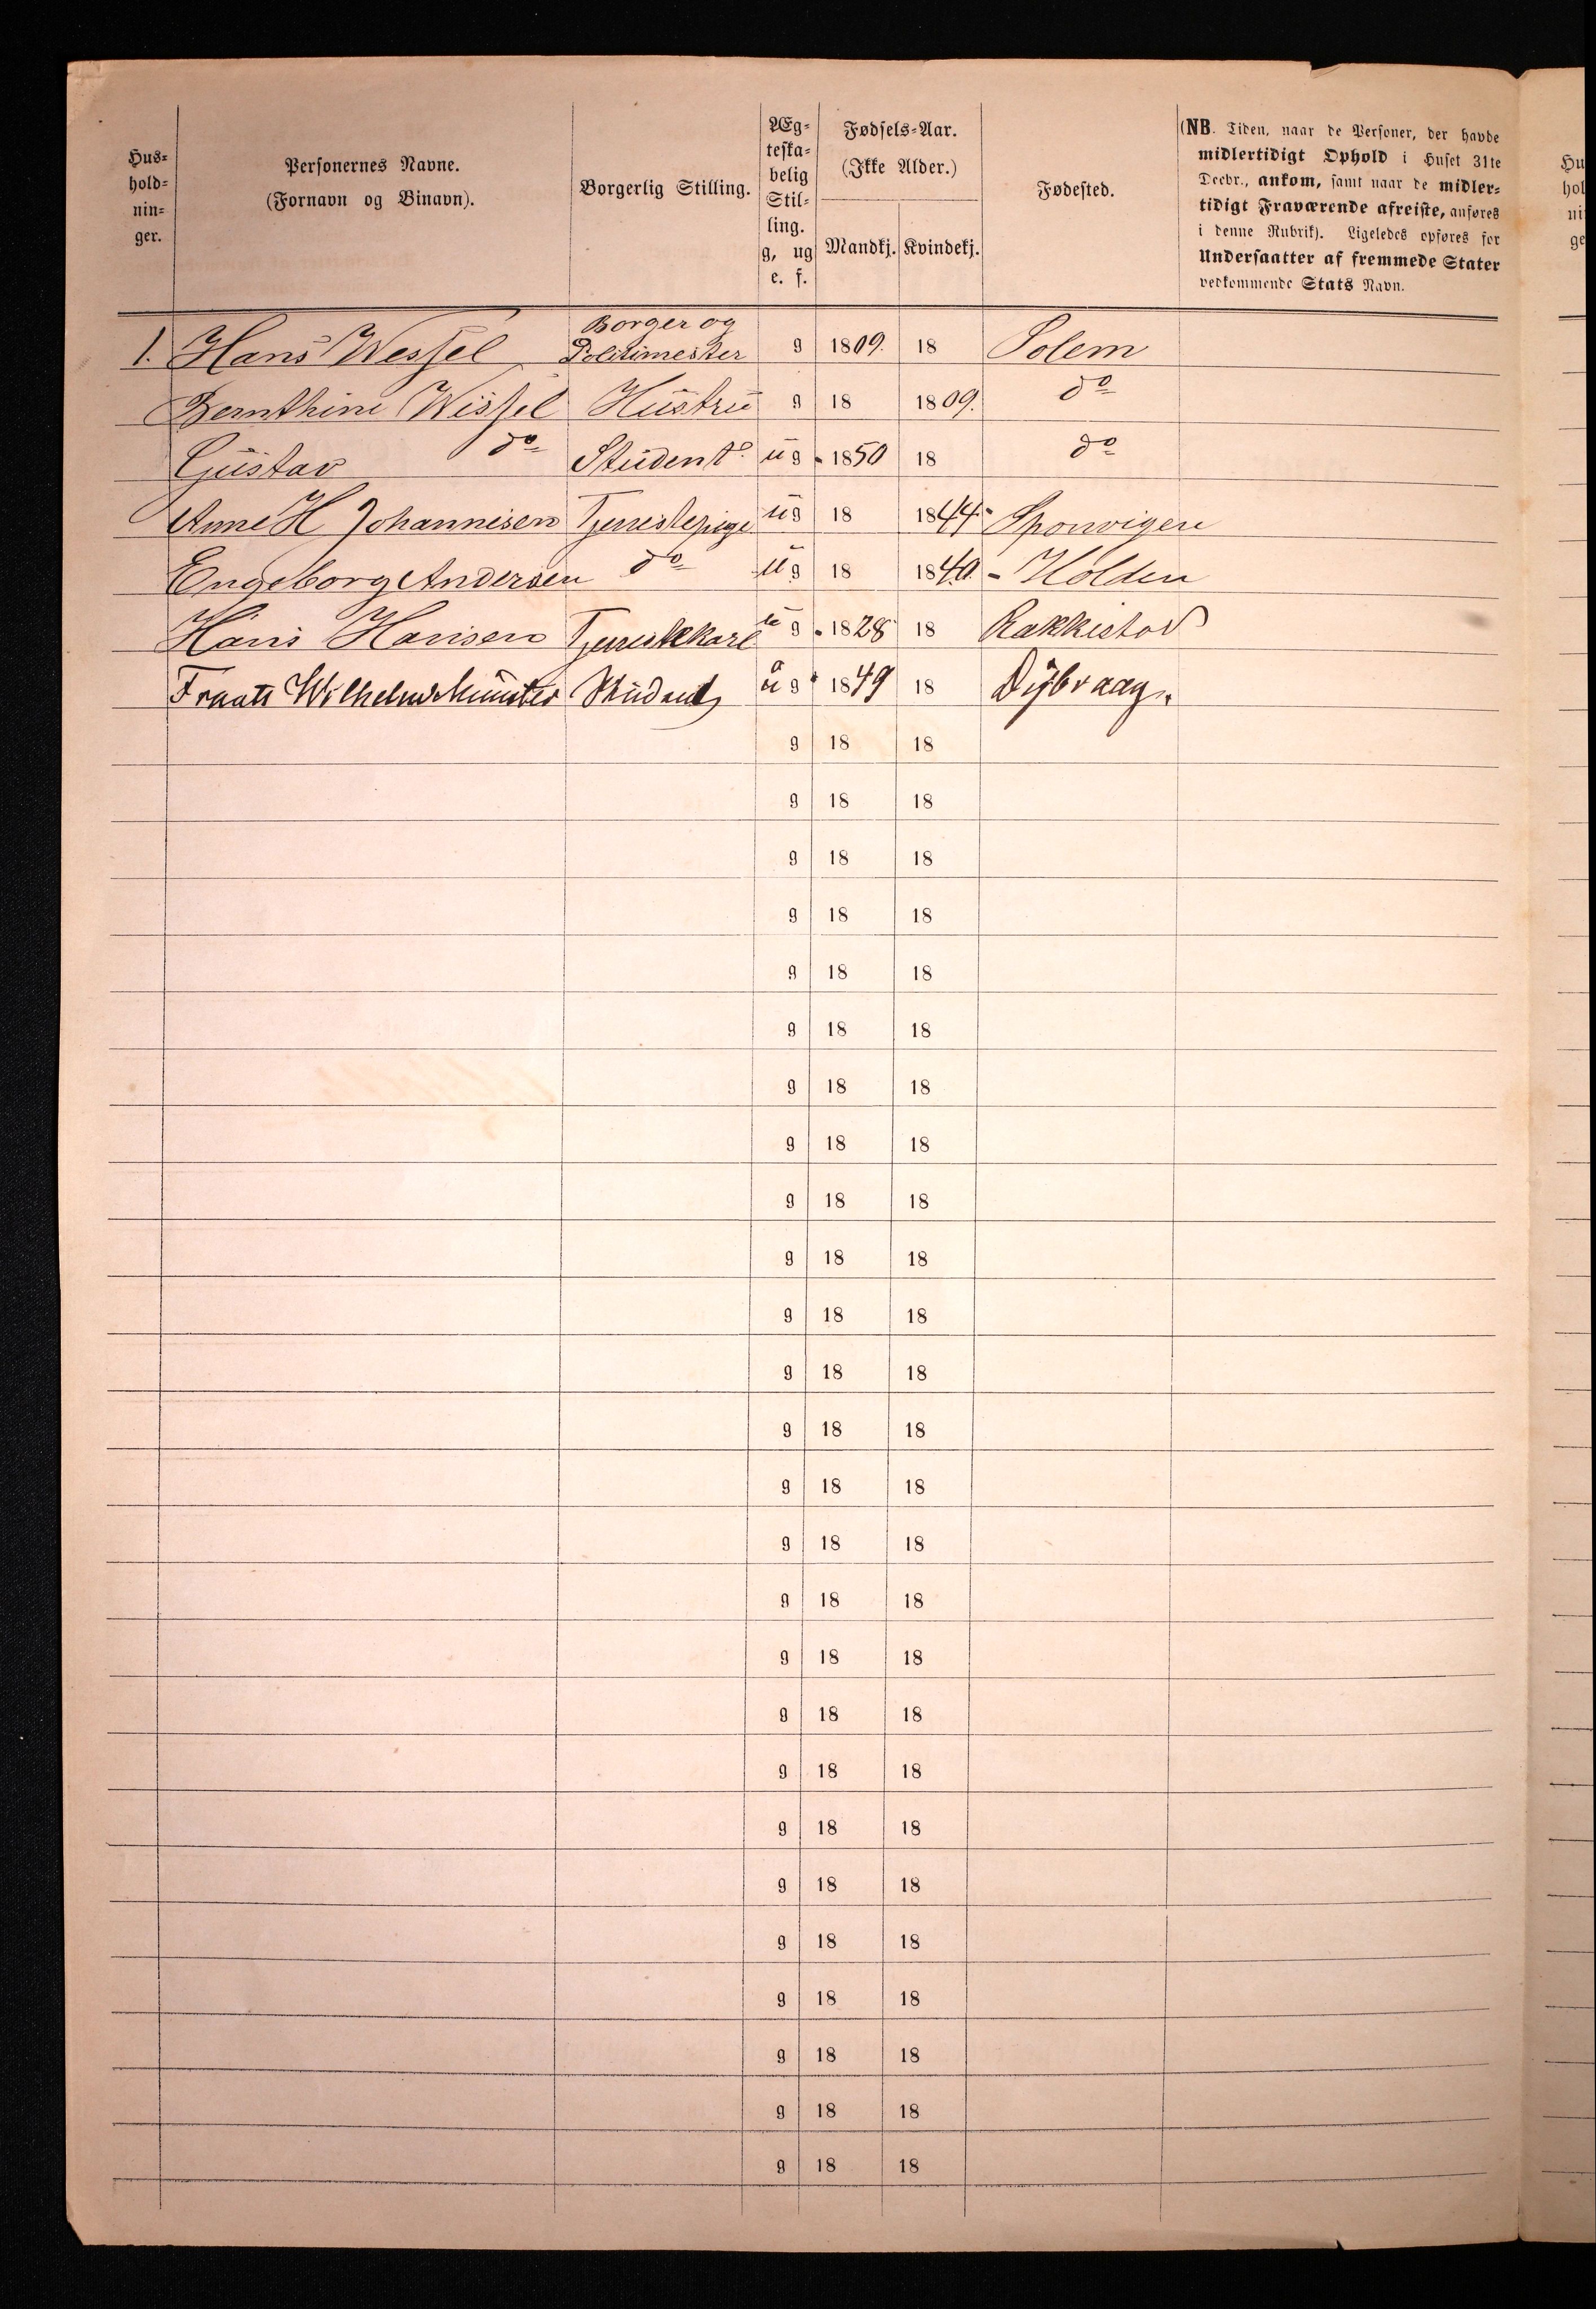 Hus-
hold-
nin-
ger.
Personernes Navne.
(Fornavn og Binavn).
Borgerlig Stilling.
Æg-
teska-
belig
Stil-
ling.
g, ug
e. f.
Fødsels-Aar.
(Ikke Alder.)
Mandkj. Kvindekj.
Fødested.
(NB. Tiden, naar de Personer, der havde
midlertidigt Ophold i Huset 31te
Decbr., ankom, samt naar de midler-
tidigt Fraværende afreiste, anføres
i denne Rubrik). Ligeledes opføres for
Undersaatter af fremmede Stater
vedkommende Stats Navn.
Borger og
1. Hans Wessel Politimester g 1809. 18 Solem
Bernthine Wessel Hustru g 18 1809. do
Gustav do Student ug 1850 18 do
Anne H Johannesen Tjenestepige ug 18 1844 Sponvigen
Engeborg Andersen do ug 18 1840. - Holden
Hans Hansen Tjenestekarl ug 1828 18 Rakkestad
Wilhelm Münster Student ug 1849 18 Dybvaag.
g 18 18
g 18 18
g 18 18
g 18 18
g 18 18
g 18 18
g 18 18
g 18 18
g 18 18
g 18 18
g 18 18
g 18 18
g 18 18
g 18 18
g 18 18
g 18 18
g 18 18
g 18 18
g 18 18
g 18 18
g 18 18
g 18 18
g 18 18
g 18 18
g 18 18
g 18 18
Hu
hol
ni
ge